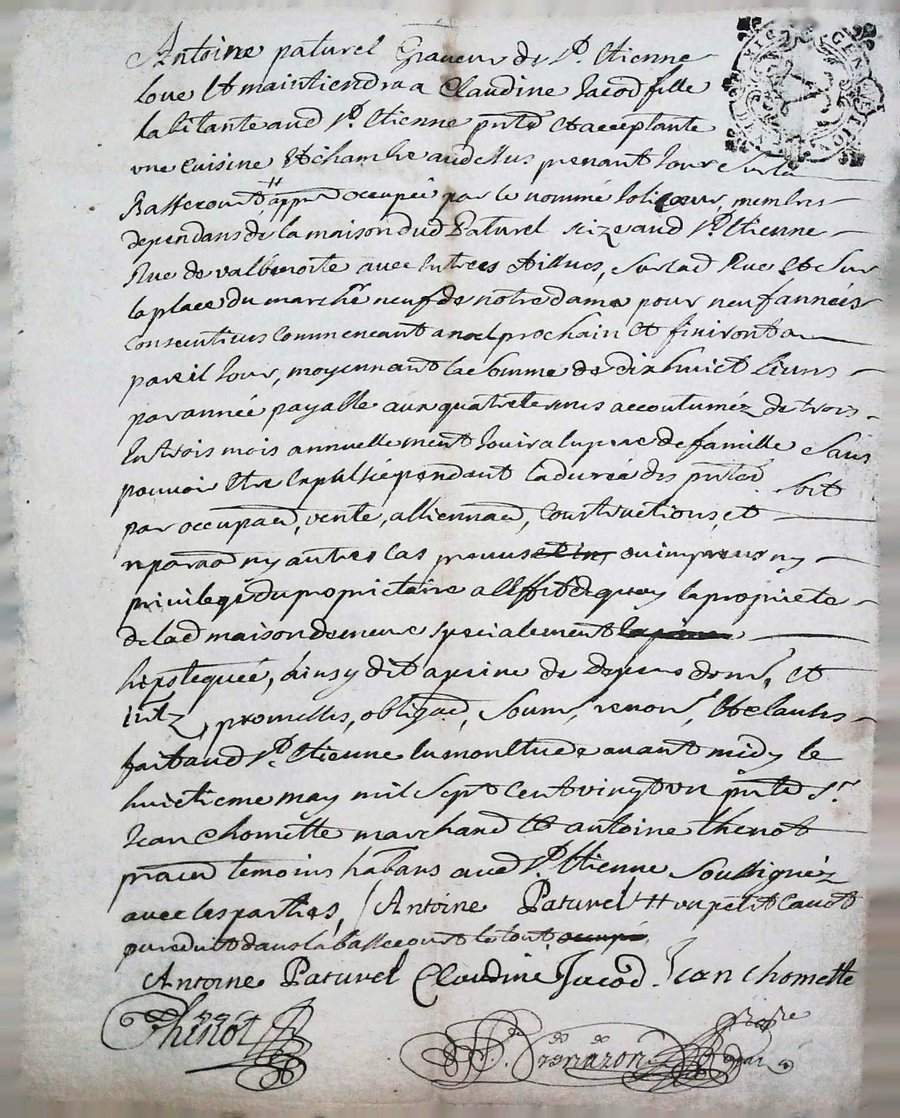 Antoine paturel Graveur de St. Etienne
loue Et maintiendra a Claudine Jacod fille
habitante aud St. Etienne pnte Et acceptante
une cuisine Et chambre audessus prenant Jour sur la
Bassecourt # appnt occupée par le nommé membres
dependans de la maison dud Paturel size aud St. Etienne
Rue de valbenoite avec Entrées Et issues, sur lad Rue Et sur
la place du marché neuf de notre dame pour neuf années
consecutives commencant a noel prochain Et finiront a
pareil Jour, moyennant la Somme de dixhuict livres
par année payable aux quatre termes accoutuméz de trois
En trois mois annuellement Jouira En pere de famille Sans
pouvoir Etre Expulsée pendant la durée des pntes soit
par occupaon, vente, allienaon, constructions et
reparaon ny autres cas prevus ou imprevus ny
privilege du proprietaire a l'Effet de quoy la propriete
de lad maison demeure specialement
hipotequée, ainsy dit a peine de depens dom, et
intz, promesses, obligaon, Soum, renon, Et clauses
fait aud St. Etienne En mon Etude avant midy le
huictieme may mil Sept Cent vingt un pnts Sr
Jean Chomette marchand Et antoine thenot
praen temoins habans aud St. Etienne Soussignéz
avec les parties, / Antoine Paturel # un petit Cavot
pn reduit dans la bassecourt le tout occupé
Antoine Paturel Claudine Jacod Jean Chomette
Thenot